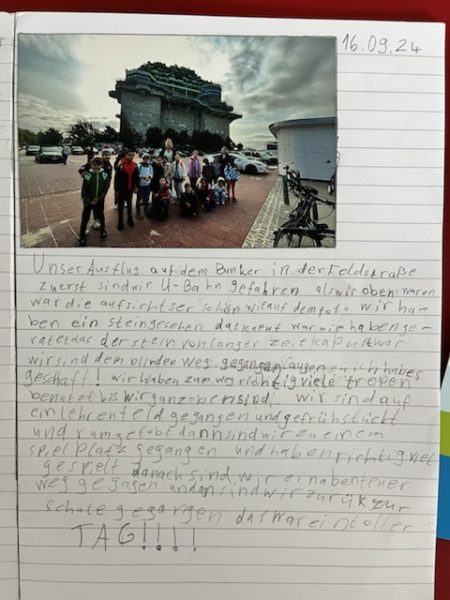 16.09.24
Unser Ausflug auf dem Bunker in der Feldstraße
zuerst sindwir U-Bahn gefahren alswir oben waren
war die aufsicht ser schön wie auf dem foto wir ha
ben ein stein gesehen das kaput war wir haben ge-
ratet das der stern vor langer zeit kaput war
wir sind dem blinden weg gegangen augen zu ich habes
geschaft! wir haben zum weg richtig viele trepen
benutzt bis wir ganz oben sind. wir sind auf
ein lehrenfeld gegangen und gefrühstückt
und rumgetobt dann sind wir zu einem
spielplatz gegangen und haben richtig viel
gespielt danach sind wir ein abenteuer
weg gegagen und dan sind wir zurük zur
schule gegangen das war ein toller
TAG!!!!